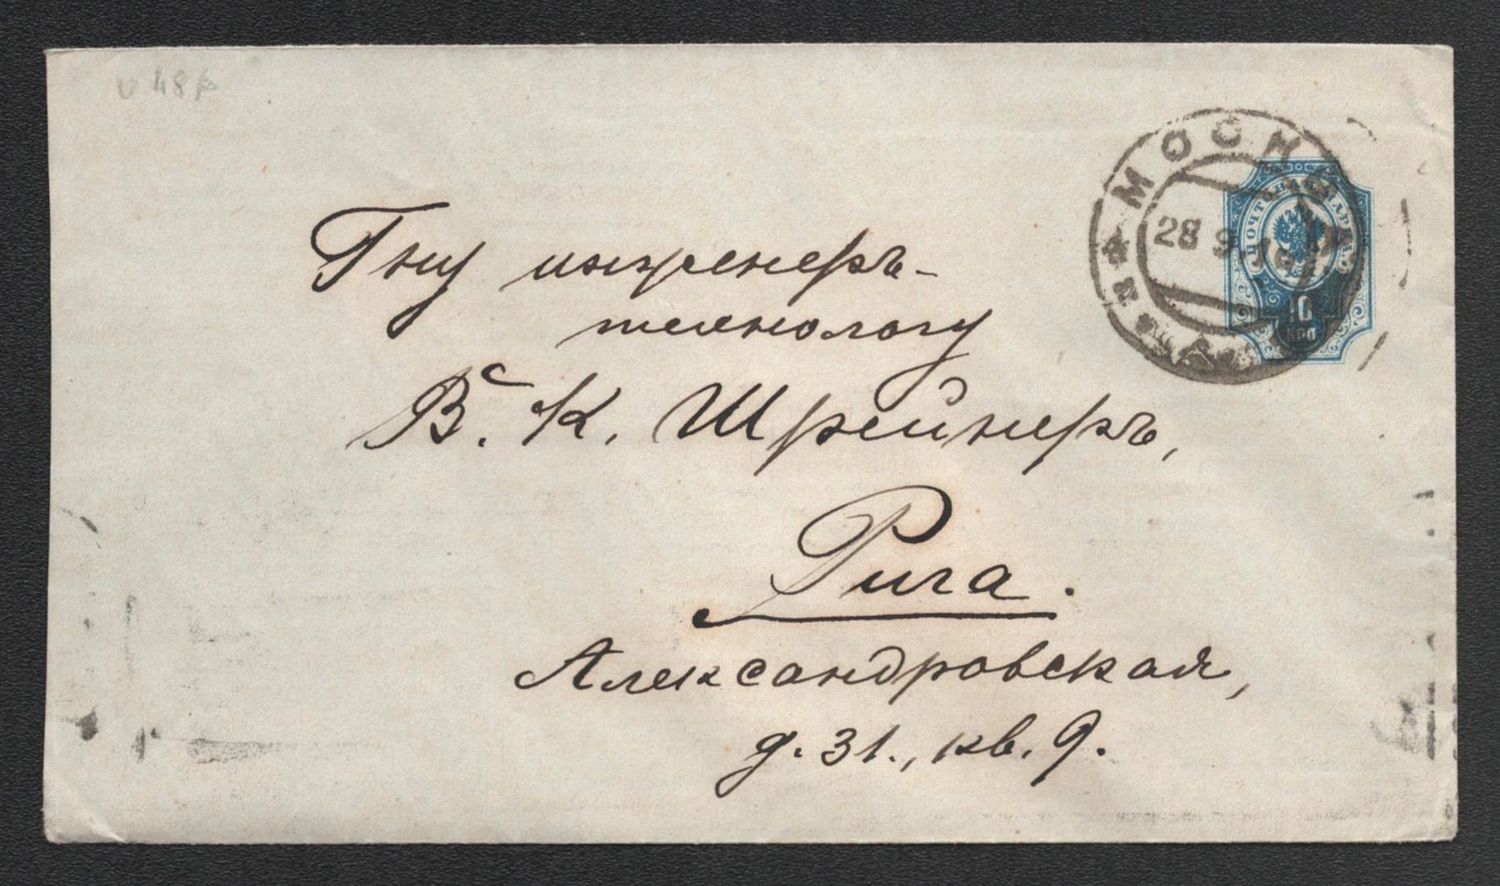 Гну инженеръ-
технологу
В. К. Шрейнеръ,
Рига.
Александровская,
д. 31., кв. 9.
МОСКВА
28 9
ПОЧТОВАЯ МАРКА
10